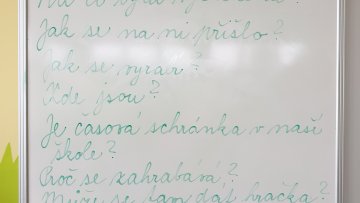 Jak se na ni přišlo?
Jak se vyrábí?
Kde jsou?
Je časová schránka v naší
škole?
Proč se zahrabává?
Může se tam dát hračka?